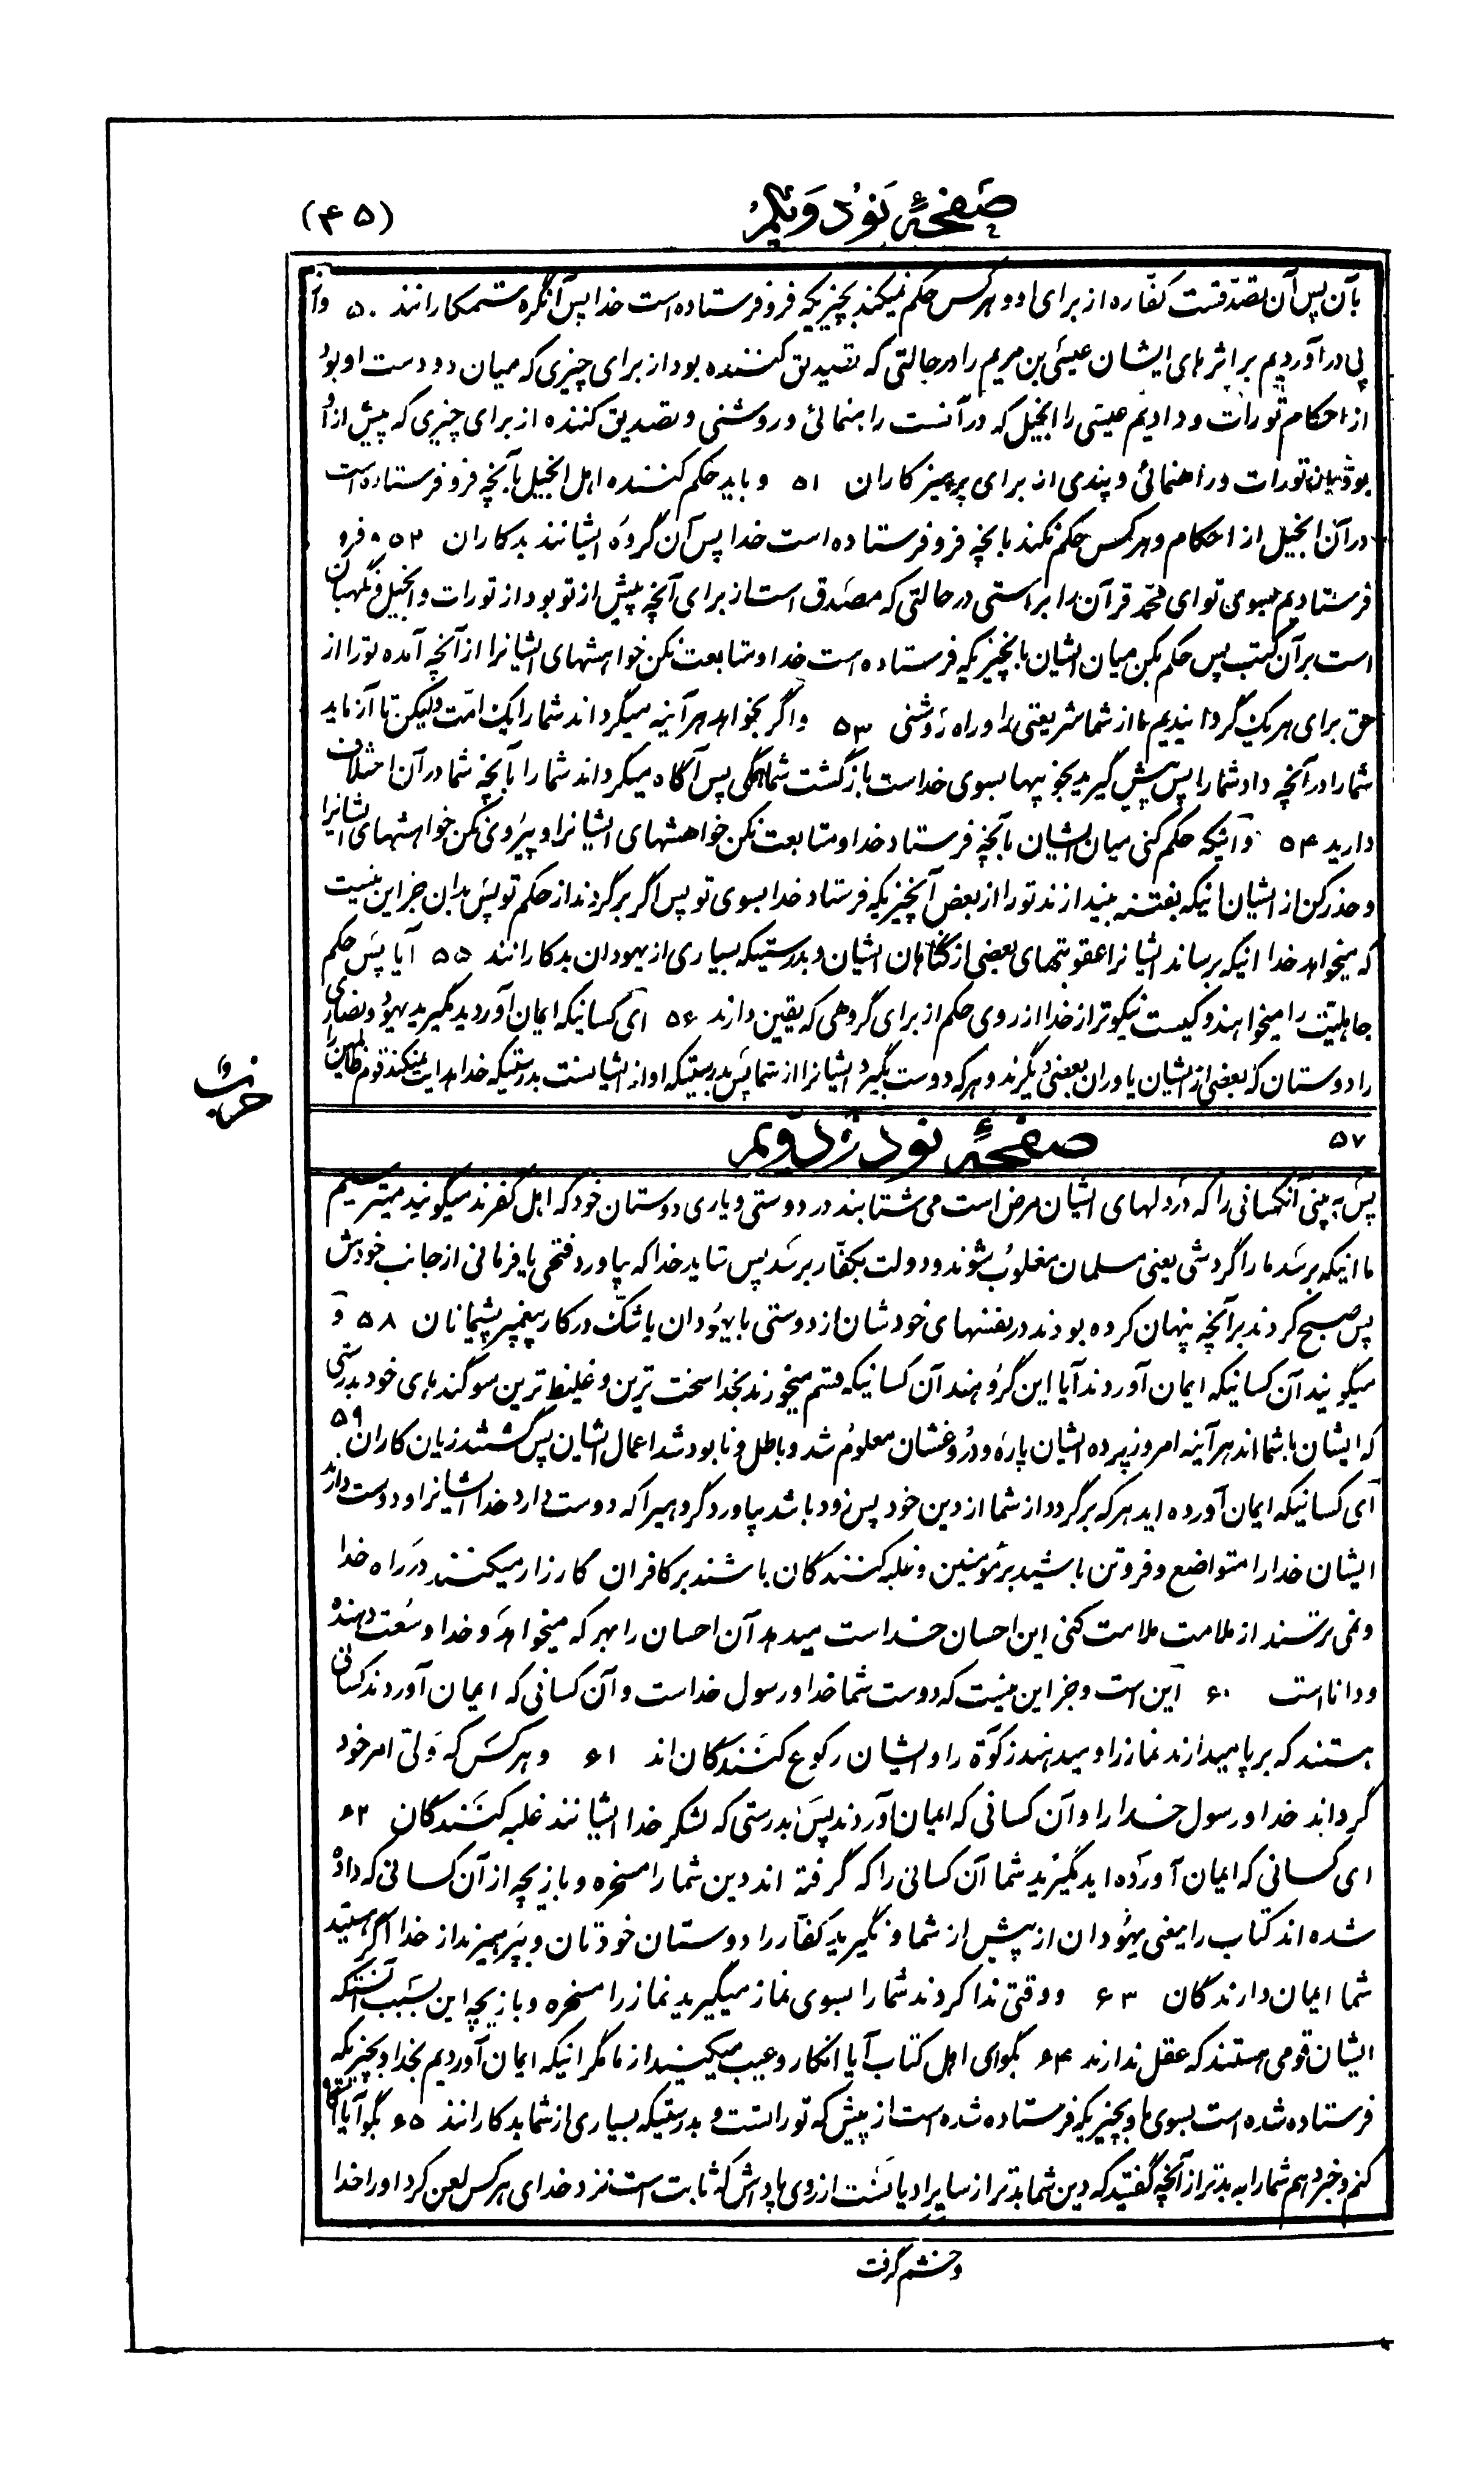 صفحهٔ نود و یکم
(۴۵)
بآن پس آن تصدقست کفّاره از برای او و هر کس حکم نمیکند بچیزیکه فرو فرستاده است خدا پس آنگره ستمکارانند ۵۰ و از
پی در آوردیم بر اثرهای ایشان عیسی بن مریم را در حالتی که تصدیق کننده بود از برای چیزی که میان دو دست او بود
از احکام تورات و دادیم عیسی را انجیل که در آنست راهنمائی و روشنی و تصدیق کننده از برای چیزی که پیش از او
بود میان تورات و راهنمائی و پندی از برای پرهیزکاران ۵۱ و باید حکم کننده اهل انجیل بآنچه فرو فرستاده است
در آن انجیل از احکام و هر کس حکم نکند بآنچه فرو فرستاده است خدا پس آن گروه ایشانند بدکاران ۵۲ و فرو
فرستادیم بسوی تو ای محمّد قرآن را براستی در حالتی که مصدق است از برای آنچه پیش از تو بود از تورات و انجیل و نگهبان
است بر آن کتب پس حکم بکن میان ایشان بآنچیزیکه فرستاده است خدا و متابعت نکن خواهشهای ایشانرا از آنچه آمده تو را از
حق برای هر یک گردانیدیم ما از شما شریعتی را و راه روشنی ۵۳ و اگر بخواهد هر آینه میگرداند شما را یک امّت ولیکن تا آزماید
شما را در آنچه داد شما را پس پیش گیرید بخوبیها بسوی خداست بازگشت شما همگی پس آگاه میگرداند شما را بآنچه شما در آن اختلاف
دارید ۵۴ و اینکه حکم کنی میان ایشان بآنچه فرستاد خدا و متابعت نکن خواهشهای ایشانرا و پیروی نکن خواهشهای ایشانرا
و حذر کن از ایشان اینکه بفتنه بیندازند تو را از بعض آنچیزیکه فرستاد خدا بسوی تو پس اگر برگردند از حکم تو پس بدان جز این نیست
که میخواهد خدا اینکه برساند ایشانرا عقوبتهای بعضی از گناهان ایشان و بدرستیکه بسیاری از یهودان بدکارانند ۵۵ آیا پس حکم
جاهلیت را میخواهند و کیست نیکوتر از خدا از روی حکم از برای گروهی که یقین دارند ۵۶ ای کسانیکه ایمان آوردید مگیرید یهود و نصاری
را دوستان که بعضی از ایشان یاوران بعضی دیگرند و هر که دوست بگیرد ایشانرا از شما پس بدرستیکه او از ایشانست بدرستیکه خدا هدایت نمیکند قوم ظالمین را
۵۷
صفحهٔ نود و دویم
پس به بینی آنکسانی را که در دلهای ایشان مرض است می شتابند در دوستی و یاری دوستان خود که اهل کفرند میگویند میترسیم
ما اینکه برسد ما را گردشی یعنی مسلمان مغلوب شوند و دولت بکفّار برسد پس شاید خدا که بیاورد فتحی یا فرمانی از جانب خودش
پس صبح کردند بر آنچه پنهان کرده بودند در نفسهای خودشان از دوستی با یهودان یا شک در کار پیغمبر پشیمانان ۵۸ و
میگویند آن کسانیکه ایمان آوردند آیا این گروهند آن کسانیکه قسم میخورند بخدا سخت ترین و غلیظ ترین سوگندهای خود بدرستی
که ایشان با شما اند هر آینه امروز پرده ایشان پاره و دروغشان معلوم شد و باطل و نابود شد اعمال ایشان پس گشتند زیان کاران ۵۹
ای کسانیکه ایمان آورده اید هر که برگردد از شما از دین خود پس زود باشد بیاورد گروهیرا که دوست دارد خدا ایشانرا و دوست دارند
ایشان خدا را متواضع و فروتن باشید بر مومنین و غلبه کنندگان باشند بر کافران کارزار میکنند در راه خدا
و نمی ترسند از ملامت ملامت کنی این احسان خداست میدهد آن احسان را بهر که میخواهد و خدا وسعت دهنده
و دانا است ۶۰ این است و جز این نیست که دوست شما خدا و رسول خداست و آن کسانی که ایمان آوردند کسانی
هستند که برپا میدارند نماز را و میدهند زکوة را و ایشان رکوع کنندگان اند ۶۱ و هر کس که ولی امر خود
گرداند خدا و رسول خدا را و آن کسانی که ایمان آوردند پس بدرستی که لشکر خدا ایشانند غلبه کنندگان ۶۲
ای کسانی که ایمان آورده اید مگیرید شما آن کسانی را که گرفته اند دین شما را مسخره و بازیچه از آن کسانی که داده
شده اند کتاب را یعنی یهودان از پیش از شما و نگیرید کفّار را دوستان خودتان و بپرهیزید از خدا اگر هستید
شما ایمان دارندگان ۶۳ و وقتی ندا کردند شما را بسوی نماز میگیرید نماز را مسخره و بازیچه این بسبب آنستکه
ایشان قومی هستند که عقل ندارند ۶۴ بگو ای اهل کتاب آیا انکار و عیب میکنید از ما مگر اینکه ایمان آوردیم بخدا و بچیزیکه
فرستاده شده است بسوی ما و بچیزیکه فرستاده شده است از پیش که تورانست و بدرستیکه بسیاری از شما بدکارانند ۶۵ بگو آیا آگاه
کنم و خبر دهم شما را به بدتر از آنچه گفتید که دین شما بدتر از سایر ادیانست از روی پاداش که ثابت است نزد خدای هر کس لعن کرد او را خدا
و خشم گرفت